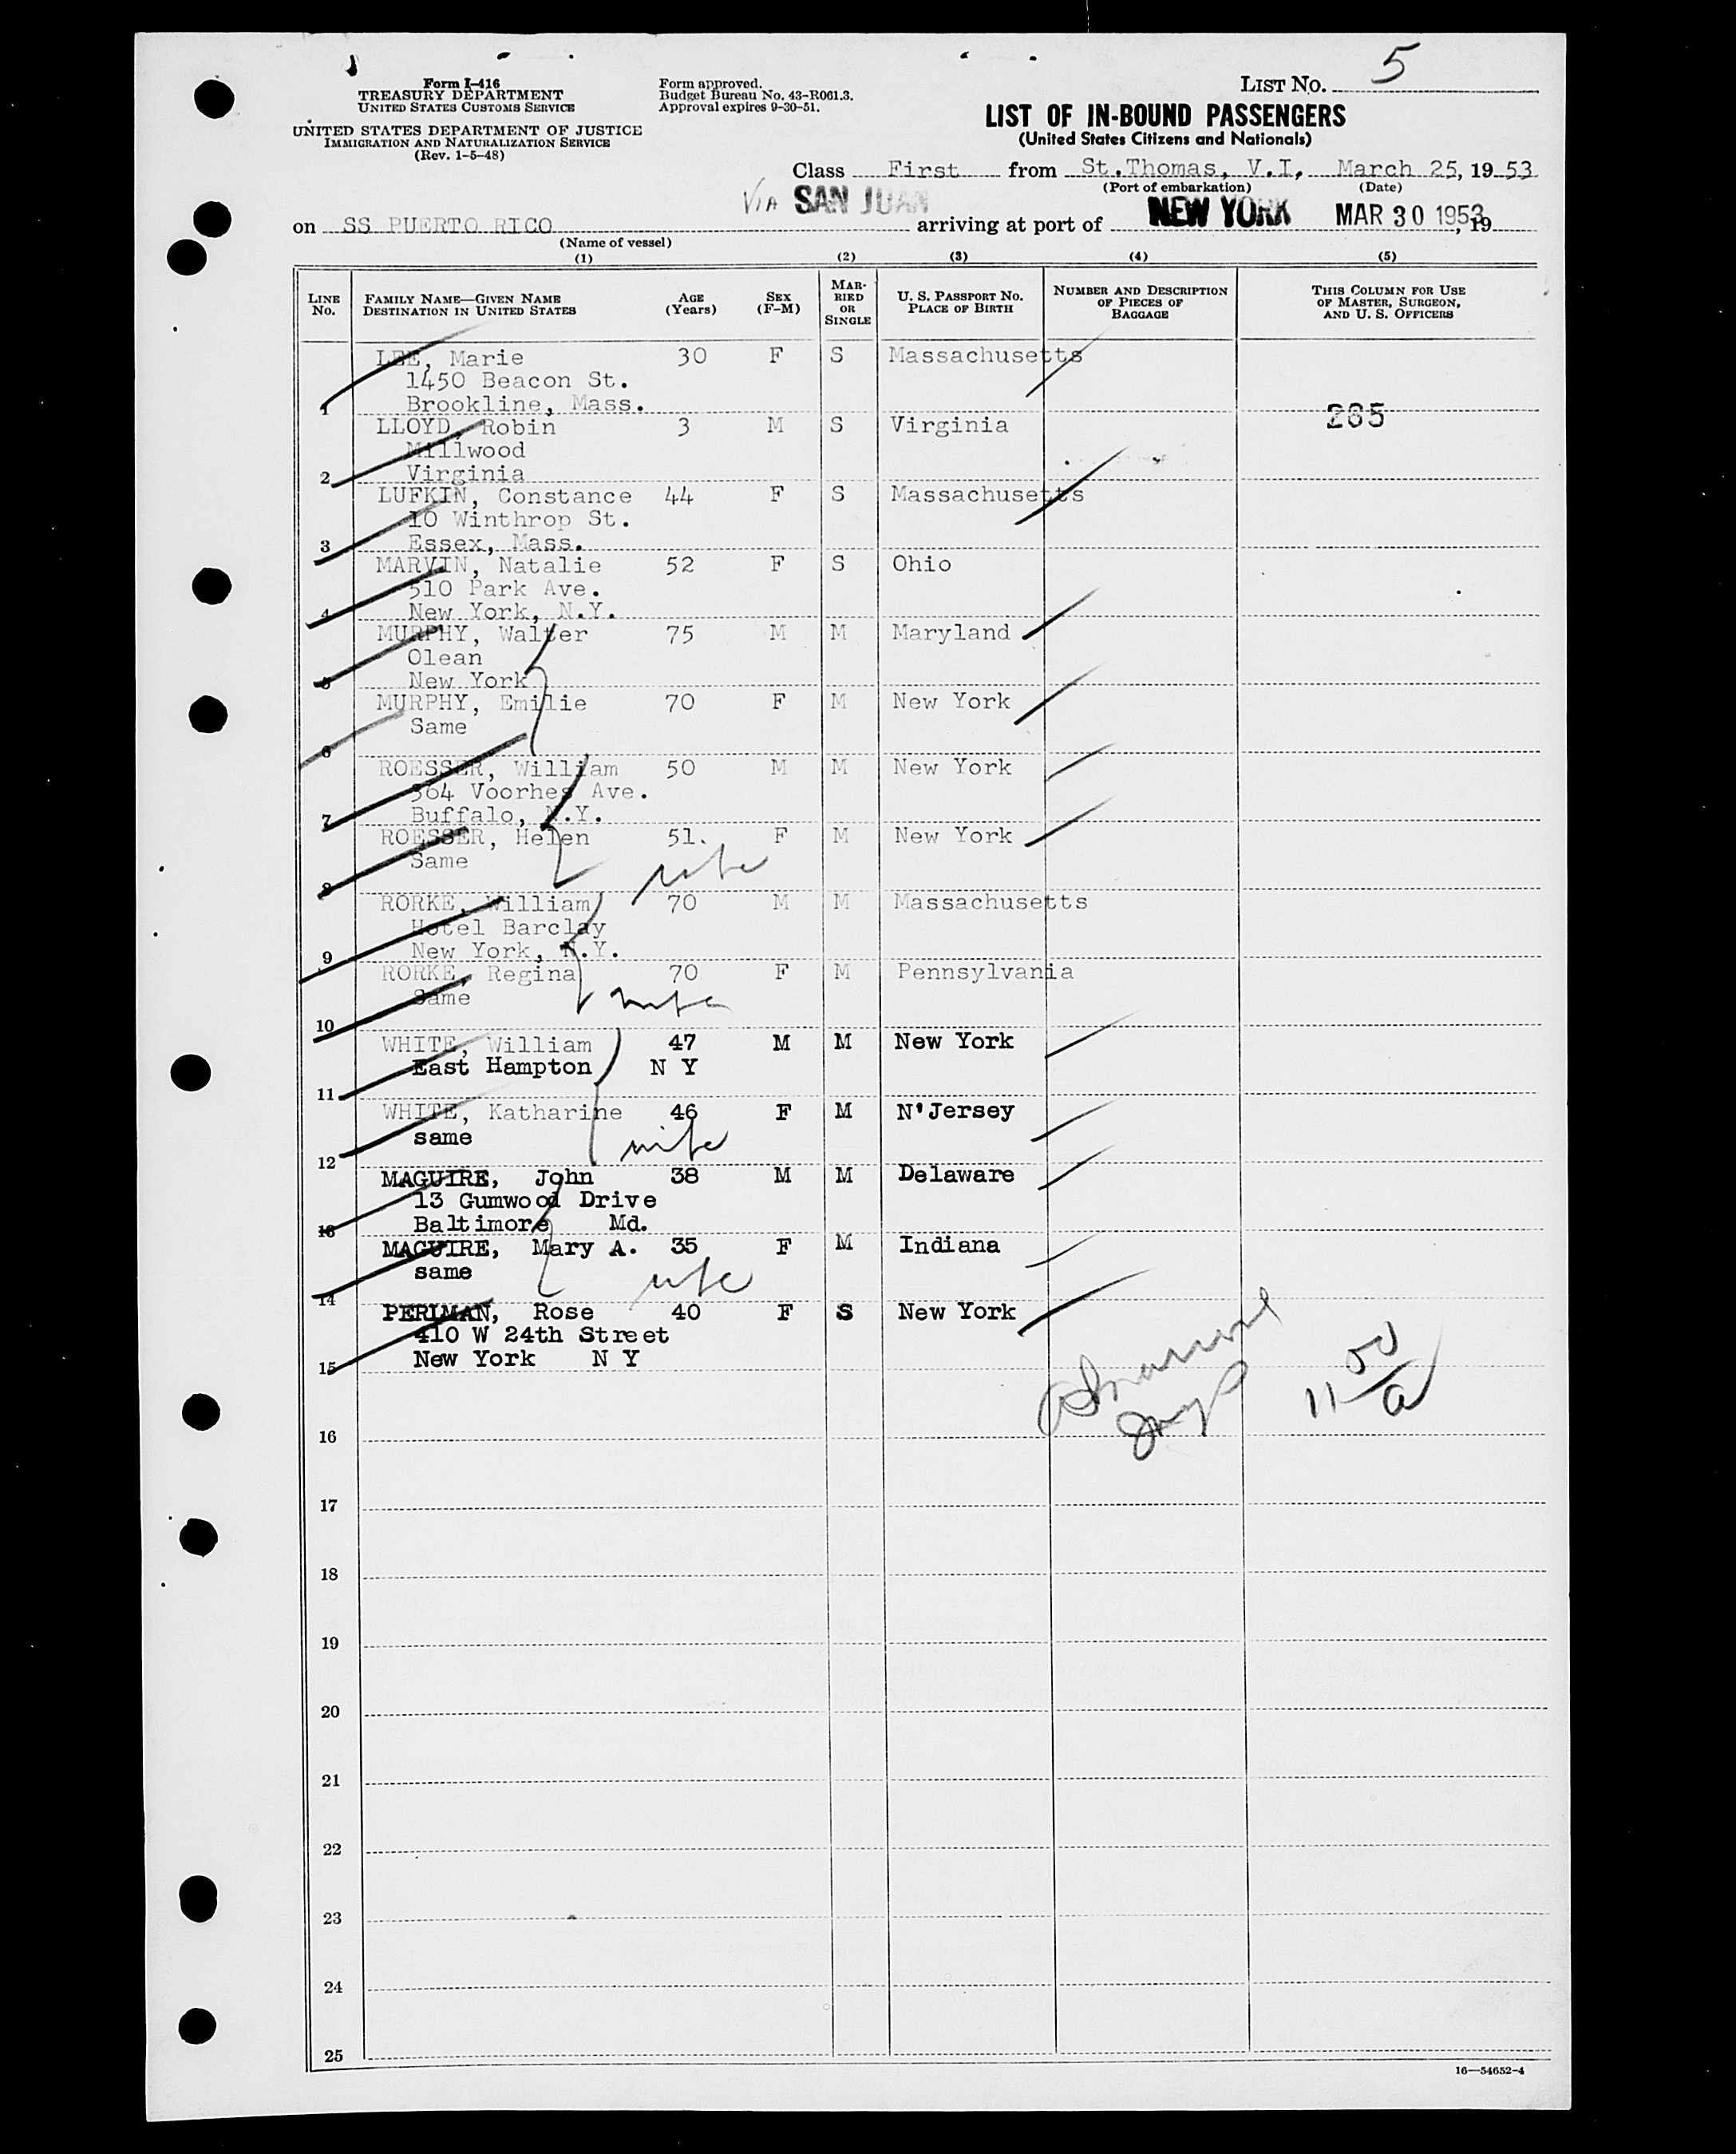 Form I-416
TREASURY DEPARTMENT
UNITED STATES CUSTOMS SERVICE
UNITED STATES DEPARTMENT OF JUSTICE
IMMIGRATION AND NATURALIZATION SERVICE
(Rev. 1-5-48)
Form approved.
Budget Bureau No. 43-R061.3.
Approval expires 9-30-51.
LIST NO. 5
LIST OF IN-BOUND PASSENGERS
(United States Citizens and Nationals)
Class First from St.Thomas, V.I, March 25, 19 53
(Port of embarkation) (Date)
VIA SAN JUAN
on SS PUERTO RICO arriving at port of NEW YORK MAR 30 1953, 19
(Name of vessel)
(1) (2) (3) (4) (5)
LINE No. FAMILY NAME—GIVEN NAME DESTINATION IN UNITED STATES AGE (Years) SEX (F-M) MARRIED OR SINGLE U. S. PASSPORT NO. PLACE OF BIRTH NUMBER AND DESCRIPTION OF PIECES OF BAGGAGE THIS COLUMN FOR USE OF MASTER, SURGEON, AND U. S. OFFICERS
LEE, Marie 30 F S Massachusetts
1450 Beacon St.
1 Brookline, Mass.
265
LLOYD, Robin 3 M S Virginia
Millwood
2 Virginia
LUFKIN, Constance 44 F S Massachusetts
10 Winthrop St.
3 Essex, Mass.
MARVIN, Natalie 52 F S Ohio
510 Park Ave.
4 New York, N.Y.
MURPHY, Walter 75 M M Maryland
Olean
5 New York
MURPHY, Emilie 70 F M New York
Same
6
ROESSER, William 50 M M New York
364 Voorhes Ave.
7 Buffalo, N.Y.
ROESSER, Helen 51. F M New York
Same
8
RORKE, William 70 M M Massachusetts
Hotel Barclay
9 New York, N.Y.
RORKE, Regina 70 F M Pennsylvania
Same
10
WHITE, William 47 M M New York
East Hampton N Y
11
WHITE, Katharine 46 F M N'Jersey
same
wife
12
MAGUIRE, John 38 M M Delaware
13 Gumwood Drive
13 Baltimore Md.
MAGUIRE, Mary A. 35 F M Indiana
same
wife
14
PERLMAN, Rose 40 F S New York
410 W 24th Street
15 New York N Y
16
17
18
19
20
21
22
23
24
25
16—54652-4